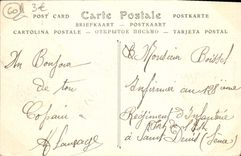 Coll 3€
POST CARD Carte Postale POSTKARTE
BRIEFKAART BREVKORT
CARTOLINA POSTALE ОТКРЫТОЕ ПИСЬМО TARJETA POSTAL
Un Bonjour
de ton
Copain
A Monsieur
Infirmier au 128 ième
Régiment d'Infanterie
à Saint Denis (Seine)